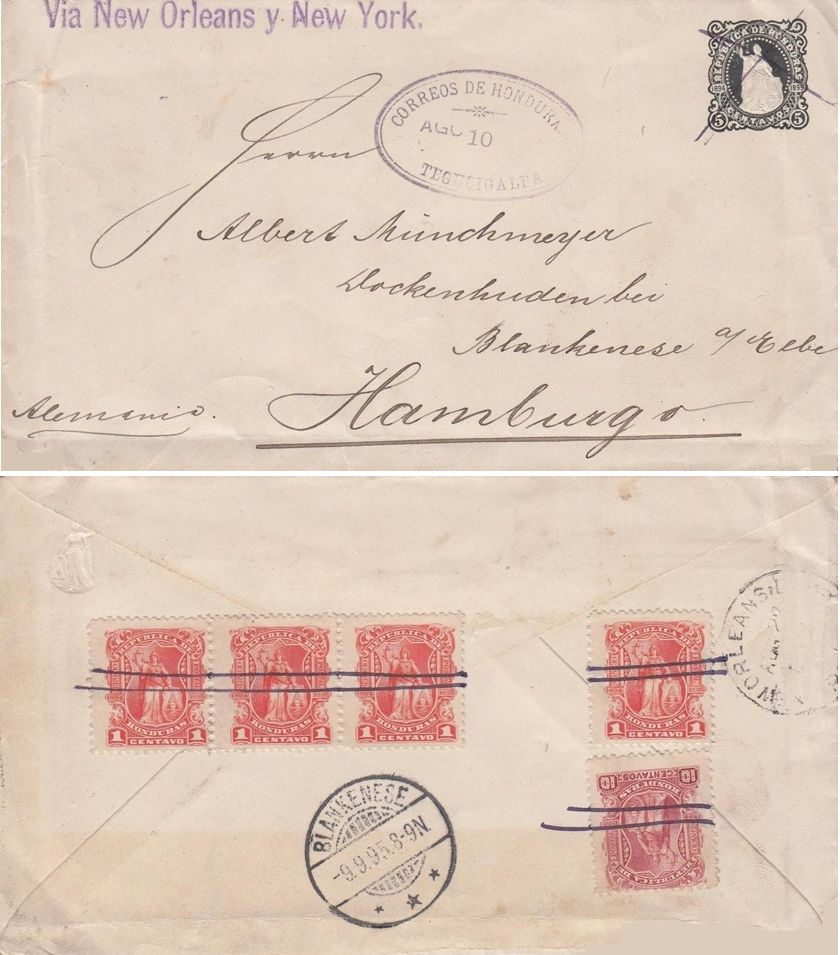 Via New Orleans y New York.
REPUBLICA DE HONDURAS
5 CENTAVOS 5
CORREOS DE HONDURA
AGO 10
TEGUCIGALPA
Herrn
Albert Münchmeyer
Dockenhuden bei
Blankenese a/Elbe
Alemania.
Hamburgo.
REPUBLICA DE
HONDURAS
1 CENTAVO 1
REPUBLICA DE
HONDURAS
1 CENTAVO 1
REPUBLICA DE
HONDURAS
1 CENTAVO 1
REPUBLICA DE
HONDURAS
1 CENTAVO 1
W ORLEANS
10 CENTAVOS 10
HONDURAS
REPUBLICA DE
BLANKENESE
-9.9.95.8-9N.